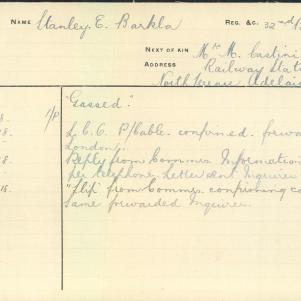 NAME Stanley. E. Barkla REG. &C. 32nd B
NEXT OF KIN Mrs M. Castini
ADDRESS Railway Stat
North Terrace Adelaid
"Gassed."
1/P
L.C.C. P/Cable. confirmed. forwa
London.
Reply from Commns Information
per telephone. Letter sent Inquirer
18. "Slip" from Commns. confirming ca
same forwarded Inquirer.